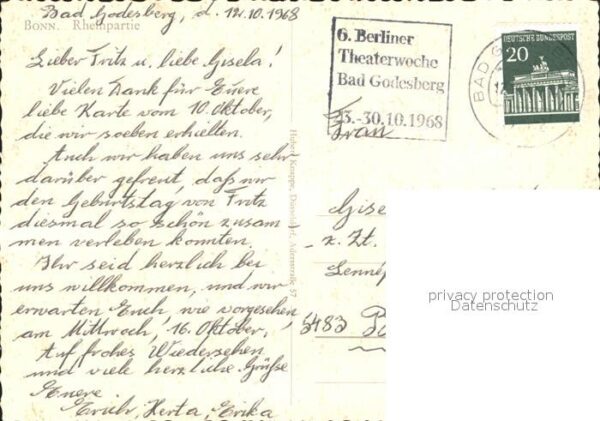 Bad Godesberg, d. 12.10.1968
BONN. Rheinpartie
Lieber Fritz u. liebe Gisela!
Vielen Dank für Euere
liebe Karte vom 10. Oktober,
die wir soeben erhielten.
Auch wir haben uns sehr
darüber gefreut, daß wir
den Geburtstag von Fritz
diesmal so schön zusam
men verleben konnten.
Ihr seid herzlich bei
uns willkommen, und wir
erwarten Euch, wie vorgesehen
am Mittwoch, 16. Oktober.
Auf frohes Wiedersehen
und viele herzliche Grüße
Euere
Erich, Herta, Erika
Düsseldorf, Adersstraße 57
6. Berliner
Theaterwoche
Bad Godesberg
13.-30.10.1968
BAD G
12
DEUTSCHE BUNDESPOST
20
Frau
Gise
z. Zt.
Lennep
5483
privacy protection
Datenschutz